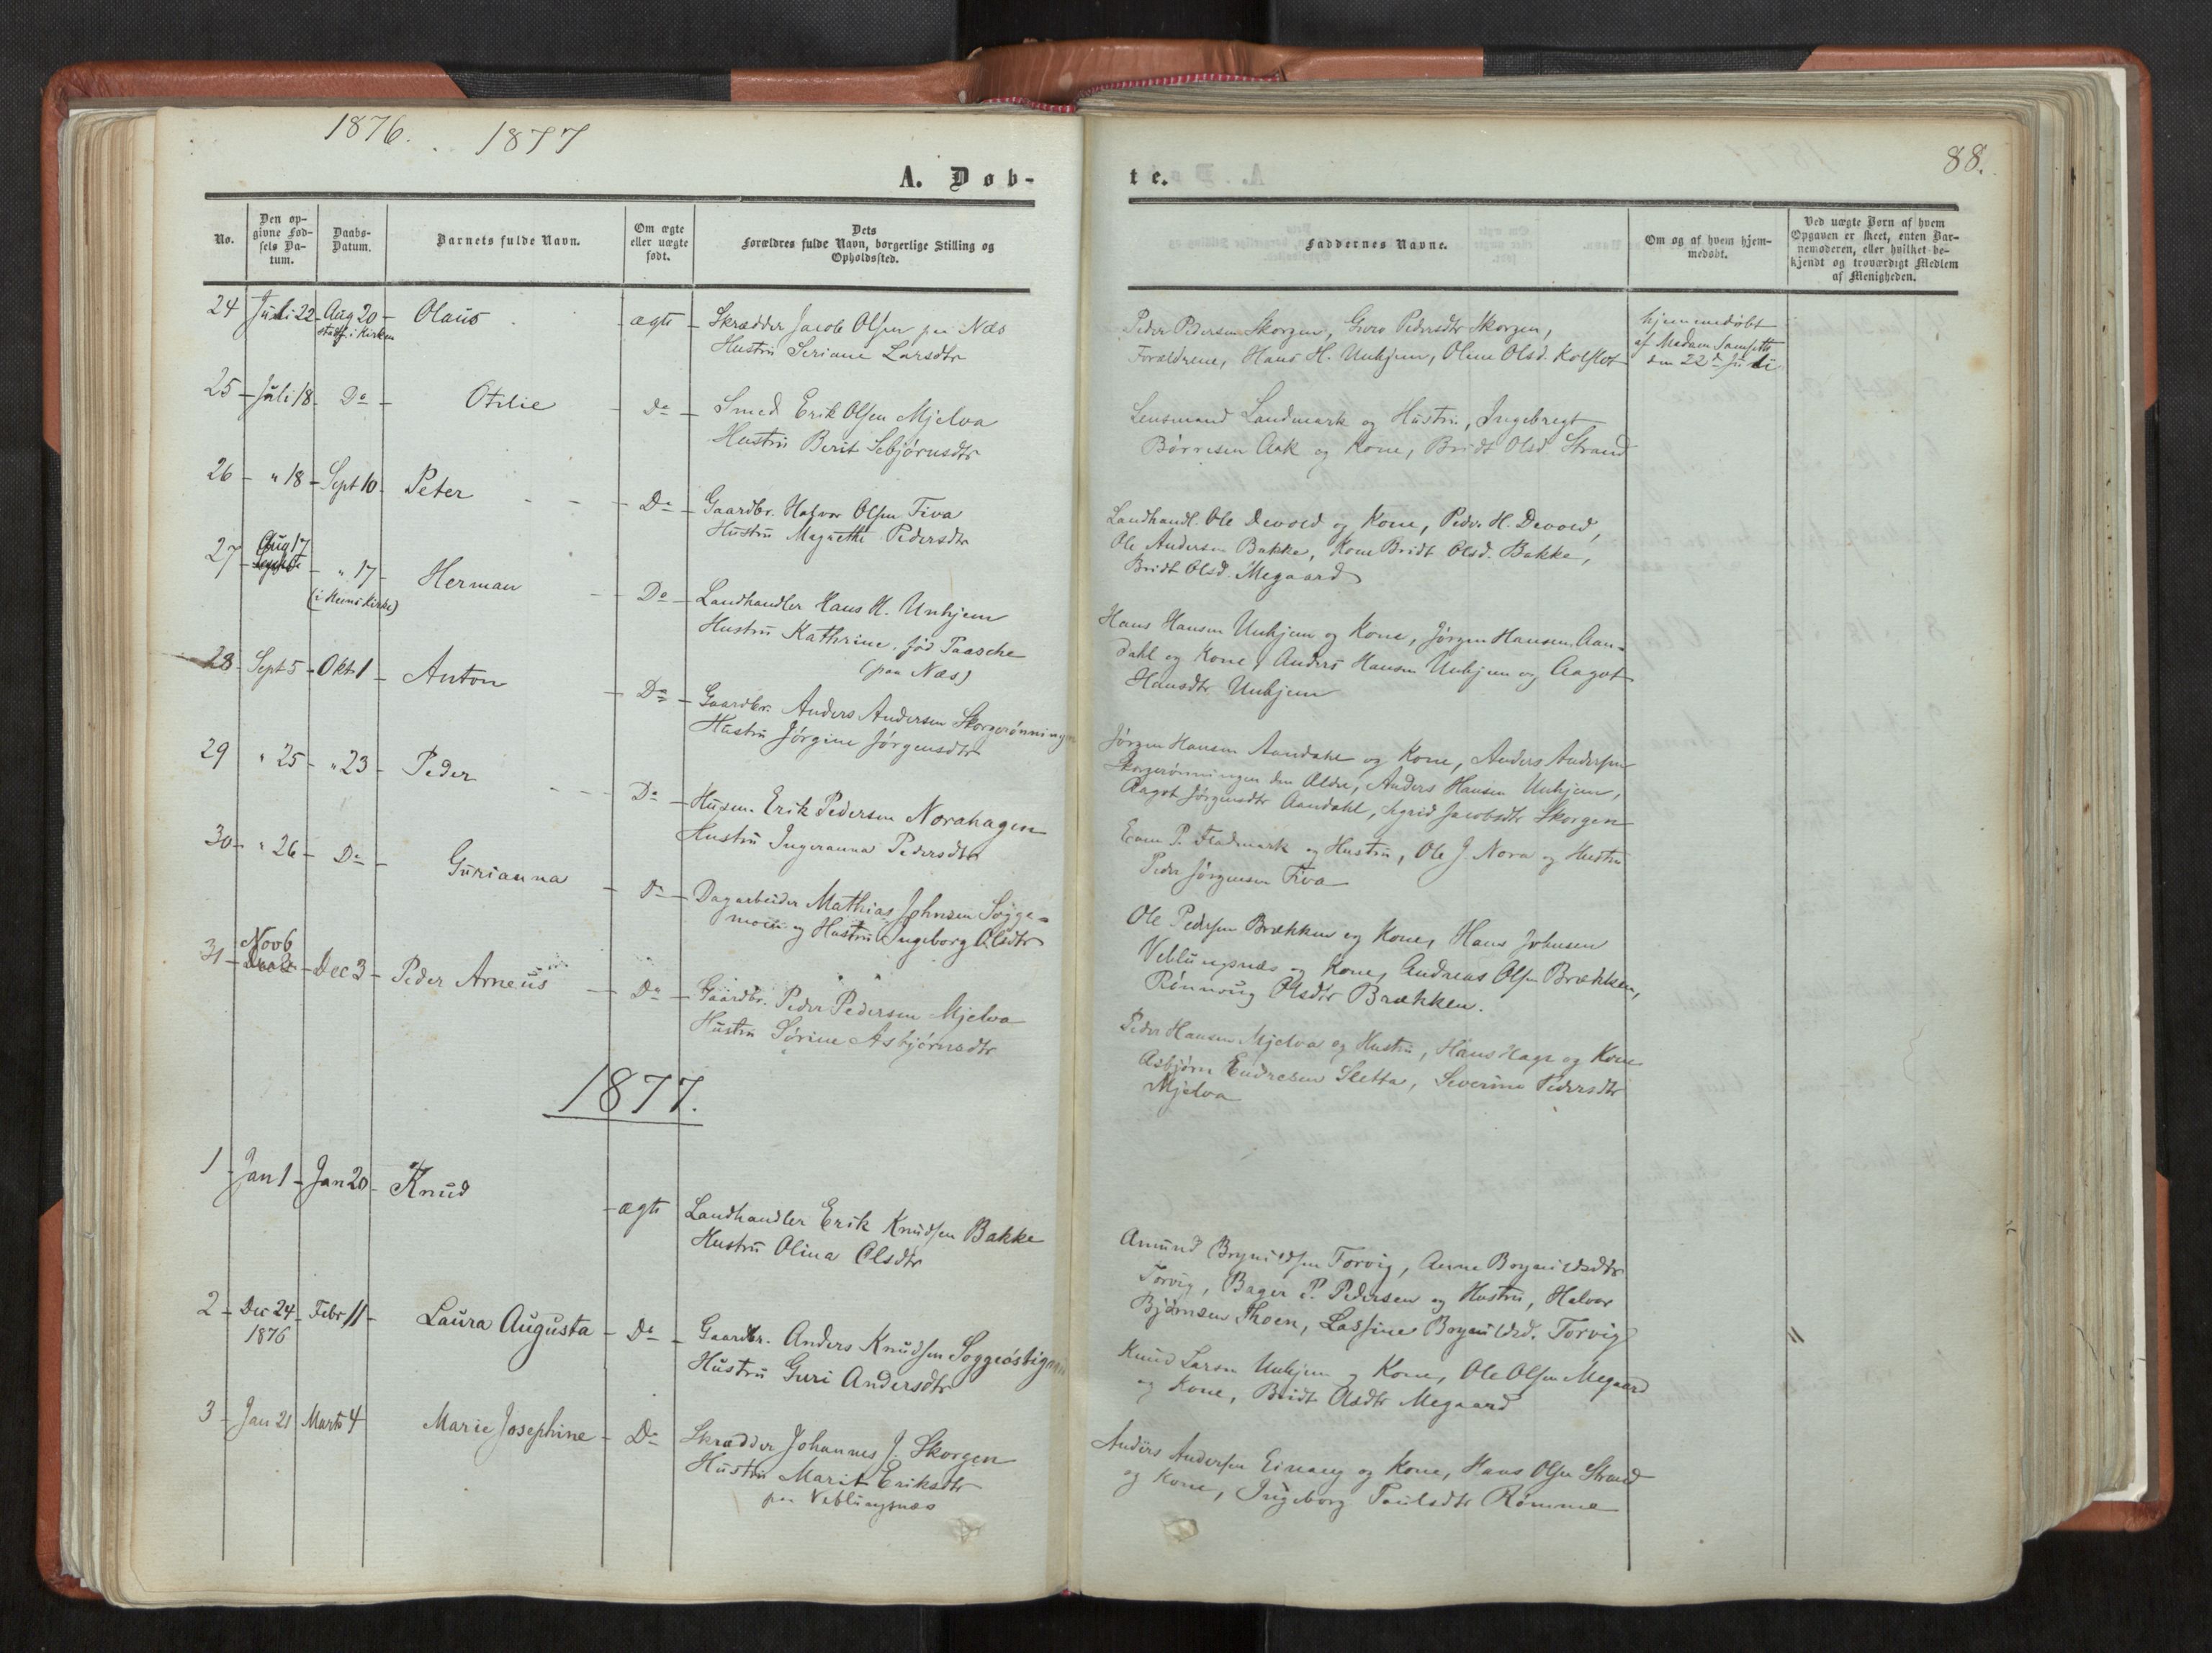 1876. 1877
88.
A. Døb-
te.
No.
Den op-
givne Fød-
sels Da-
tum.
Daabs-
Datum.
Barnets fulde Navn.
Om ægte
eller uægte
født.
Dets
Forældres fulde Navn, borgerlige Stilling og
Opholdssted.
Faddernes Navne.
Om og af hvem hjem-
medøbt.
Ved uægte Børn af hvem
Opgaven er skeet, enten Bar-
nemoderen, eller hvilket be-
kjendt og troværdigt Medlem
af Menigheden.
24 Juli 22 - Aug 20 - Olaus - ægte - Skrædder Jacob Olsen paa Næs
stadf. i Kirken
Hustru Seriane Larsdtr
Peder Pedersen Skorgen, Guro Pedersdtr Skorgen,
Forældrene, Hans H. Unhjem, Oline Olsd. Kolflot
hjemmedøbt
af Madam
den 22d Juli
25 - Juli 18 - Do - Otilie - do - Smed Erik Olsen Mjelva
Hustru Berit Sebjørnsdtr
Lensmand Landmark og Hustru, Ingebregt
Børresen Aak og Kone, Bridt Olsd. Strand
26 - " 18 - Sept 10 - Peter - Do - Gaardbr. Halvor Olsen Fiva
Hustru Magrethe Pedersdtr
Landhandl. Ole Devold og Kone, Peder H. Devold,
Ole Andersen Bakke, Kone Bridt Olsd. Bakke,
Bridt Olsd. Megaard
27 - Aug 17 - " 17 - Herman - Do - Landhandler Hans H. Unhjem
(i Hens Kirke)
Hustru Kathrine, fød Paasche
(paa Næs)
Hans Hansen Unhjem og Kone, Jørgen Hansen Aan-
dahl og Kone, Anders Hansen Unhjem og Aagot
Hansdtr Unhjem
28 - Sept 5 - Okt 1 - Anton - Do - Gaardbr. Anders Andersen Skorgerønningen
Hustru Jørgine Jørgensdtr
Jørgen Hansen Aandahl og Kone, Anders Andersen
Skorgerønningen den Ældre, Anders Hansen Unhjem,
Aagot Jørgensdtr Aandahl, Sigrid Jacobsdtr Skorgen
29 " 25 - " 23 - Peder - Do - Husm. Erik Pedersen Norahagen
Hustru Ingeranna Pedersdtr
Even P. Fladmark og Hustru, Ole J. Nora og Hustru
Peder Jørgensen Fiva
30 - " 26 - Do - Gurianna - Do - Dagarbeider Mathias Johnsen Sogge-
moen og Hustru Ingeborg Olsdtr
Ole Pedersen Brækken og Kone, Hans Johnsen
Veblungsnæs og Kone, Andreas Olsen Brækken,
Rønnoug Olsdtr Brækken.
31 - Nov 6 - Dec 3 - Peder Arneus - Do - Gaardbr. Peder Pedersen Mjelva
Hustru Sørine Asbjørnsdtr
Peder Hansen Mjelva og Hustru, Hans Hage og Kone
Asbjørn Endresen Sletta, Severine Pedersdtr
Mjelva
1877.
1 - Jan 1 - Jan 20 - Knud - ægte Landhandler Erik Knudsen Bakke
Hustru Olina Olsdtr
Amund Brynildsen Torvig, Anne Brynildsdtr
Torvig, Bager P. Pedersen og Hustru, Halvor
Bjørnsen Thoen, Lassine Brynildsd. Torvig
2 - Dec 24 - Febr 11 - Laura Augusta - Do - Gaardbr. Anders Knudsen Soggeøstigaard
1876
Hustru Guri Andersdtr
Knud Larsen Unhjem og Kone, Ole Olsen Megaard
og Kone, Bridt Olsdtr Megaard
"
3 - Jan 21 Marts 4 Marie Josephine - Do - Skrædder Johannes J. Skorgen
Hustru Marit Eriksdtr
paa Veblungsnæs
Anders Andersen Einang og Kone, Hans Olsen Strand
og Kone, Ingeborg Paulsdtr Rømme